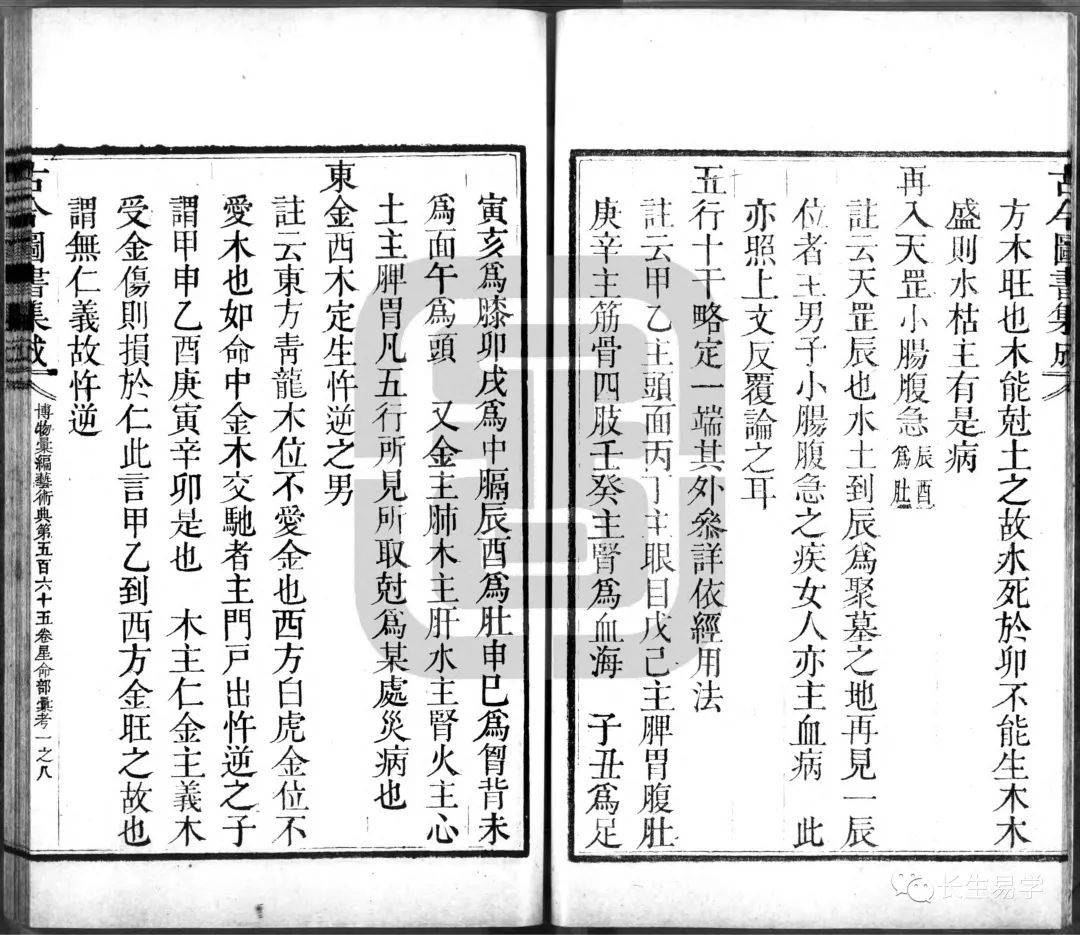 古今圖書集成
方木旺也木能尅土之故水死於卯不能生木木
盛則水枯主有是病
再入天罡小腸腹急辰酉爲肚
註云天罡辰也水土到辰爲聚墓之地再見一辰
位者主男子小腸腹急之疾女人亦主血病　此
亦照上文反覆論之耳
五行十干略定一端其外叅詳依經用法
註云甲乙主頭面丙丁主眼目戊己主脾胃腹肚
庚辛主筋骨四肢壬癸主腎爲血海　子丑爲足
寅亥爲膝卯戌爲中膈辰酉爲肚申巳爲胷背未
爲面午爲頭　又金主肺木主肝水主腎火主心
土主脾胃凡五行所見所取尅爲某處災病也
東金西木定生忤逆之男
註云東方靑龍木位不愛金也西方白虎金位不
愛木也如命中金木交馳者主門戸出忤逆之子
謂甲申乙酉庚寅辛卯是也　木主仁金主義木
受金傷則損於仁此言甲乙到西方金旺之故也
謂無仁義故忤逆
古今圖書集成
博物彙編藝術典第五百六十五卷星命部彙考一之八
长生易学